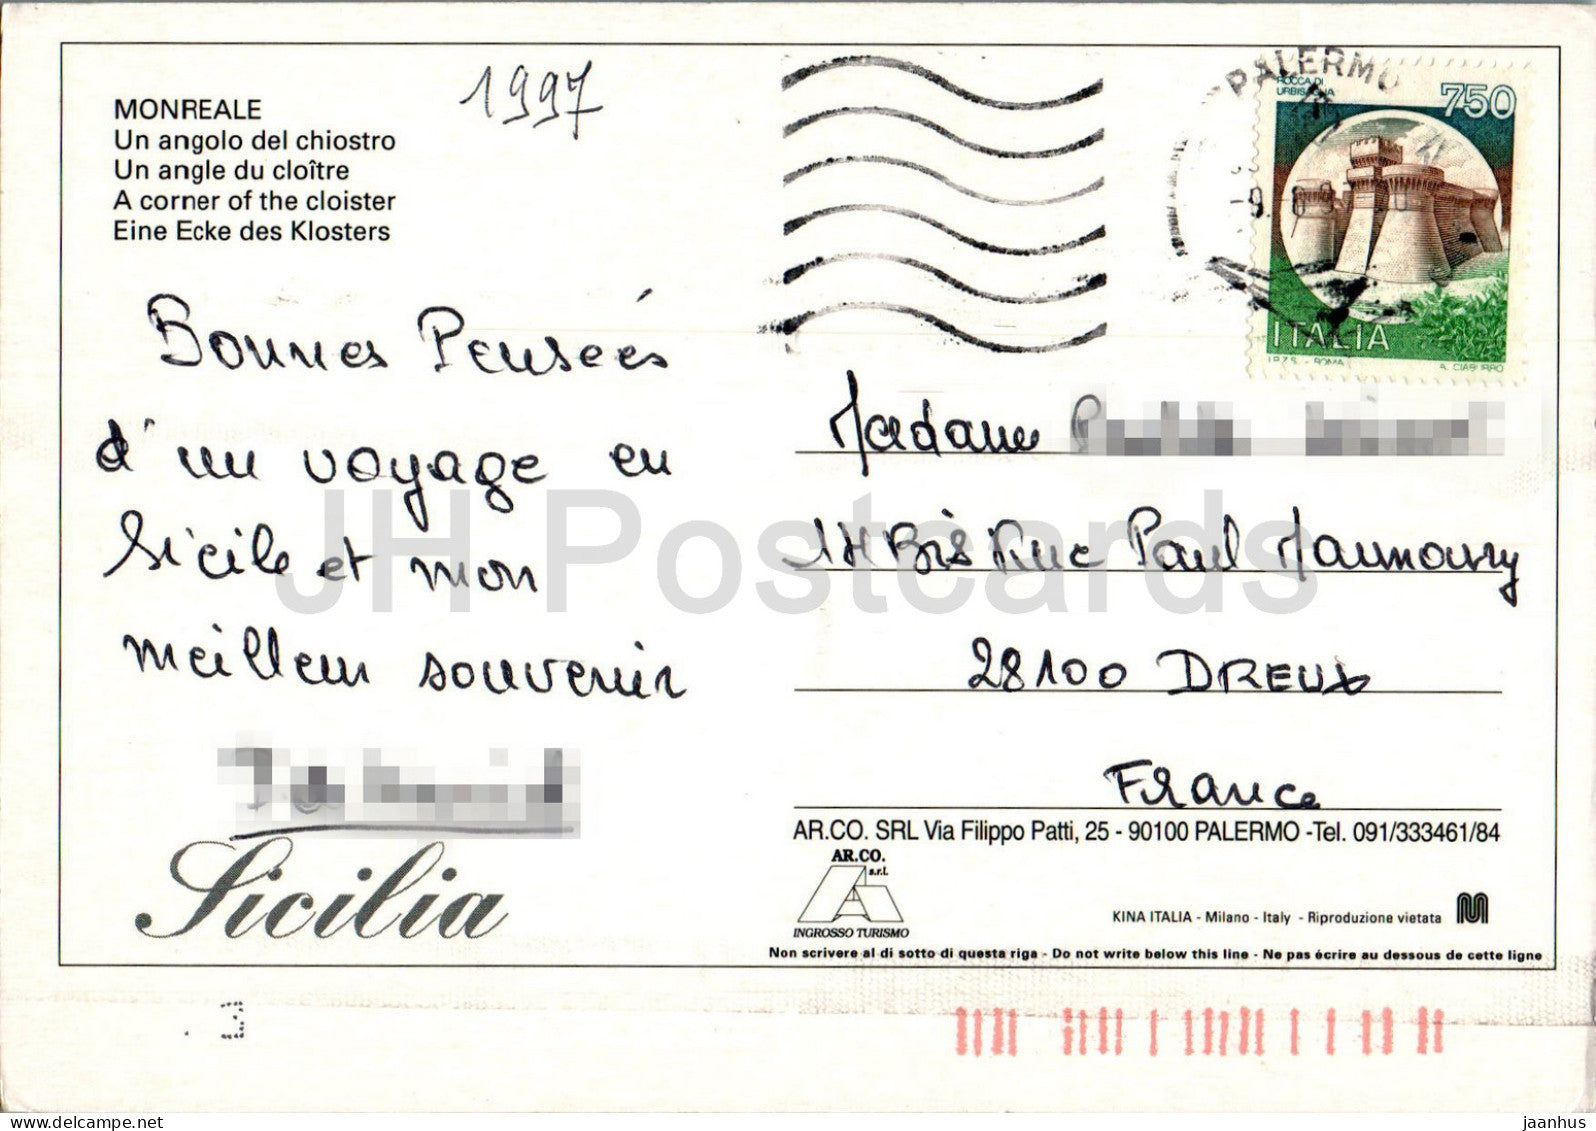 1997
MONREALE
Un angolo del chiostro
Un angle du cloître
A corner of the cloister
Eine Ecke des Klosters
Bonnes Pensées
d'un voyage en
Sicile et mon
meilleur souvenir
Sicilia
PALERMO
ROCCA DI
URBISAGLIA
750
ITALIA
I.P.Z.S. - ROMA
A. CIABURRO
Madame
14 Bis Rue Paul Maunoury
28100 DREUX
France
AR.CO. SRL Via Filippo Patti, 25 - 90100 PALERMO -Tel. 091/333461/84
AR.CO.
s.r.l.
INGROSSO TURISMO
KINA ITALIA - Milano - Italy - Riproduzione vietata
Non scrivere al di sotto di questa riga - Do not write below this line - Ne pas écrire au dessous de cette ligne
JH Postcards
jaanhus @ delcampe.net